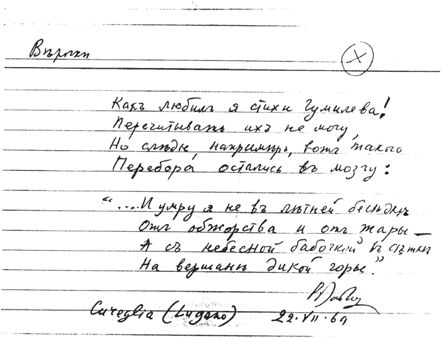 Вѣрочкѣ
X
Какъ любилъ я стихи Гумилева!
Перечитывать ихъ не могу,
Но слѣды, напримѣръ, вотъ такого
Перебора остались въ мозгу:
"....И умру я не въ лѣтней бесѣдкѣ
Отъ обжорства и отъ жары —
А съ небесной бабочкой въ сѣткѣ
На вершинѣ дикой горы."
Cureglia (Lugano) 22.VII.69